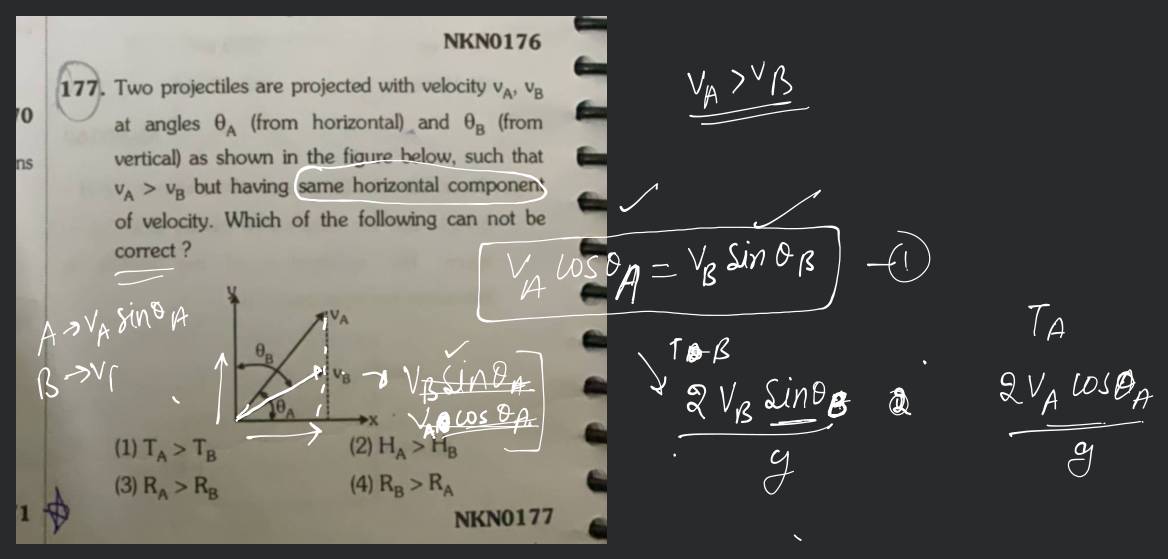 NKN0176
177. Two projectiles are projected with velocity v_A, v_B
at angles θ_A (from horizontal) and θ_B (from
vertical) as shown in the figure below, such that
v_A > v_B but having same horizontal component
of velocity. Which of the following can not be
correct ?
70
ns
y
v_A
θ_B
v_B
θ_A
x
(1) T_A > T_B (2) H_A > H_B
(3) R_A > R_B (4) R_B > R_A
1
NKN0177
V_A > V_B
V_A cosθ_A = V_B sinθ_B —①
A → V_A sinθ_A
B → V
V_B sinθ_A
V_A cosθ_A
T B
2 V_B sinθ_B
g
2
T_A
2 V_A cosθ_A
g